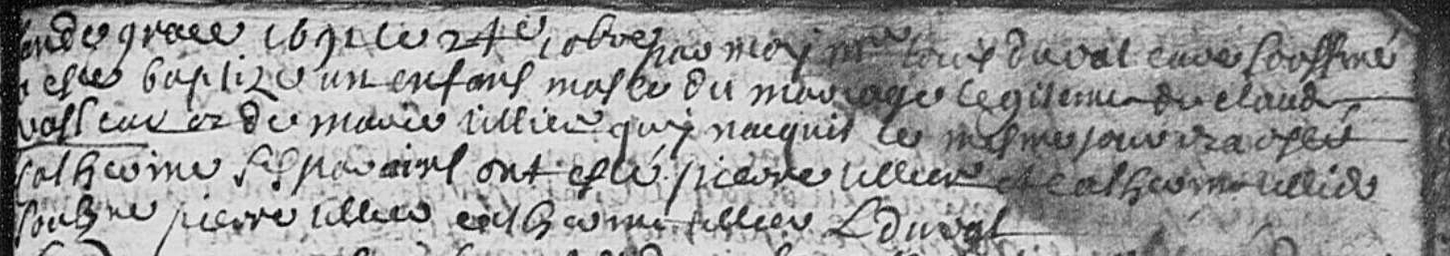 lan de grace 1691 le 24e iobre par moy mre louis duval cure soussiné
a esté baptizé un enfant masle du mariage legitime de claude
vasseur et de marie tillier quy nacquit le mesme jour et a esté
catherine ses parains ont esté pierre tillier et catherine tillier
soubzné pierre tillier catherine tillier L duval